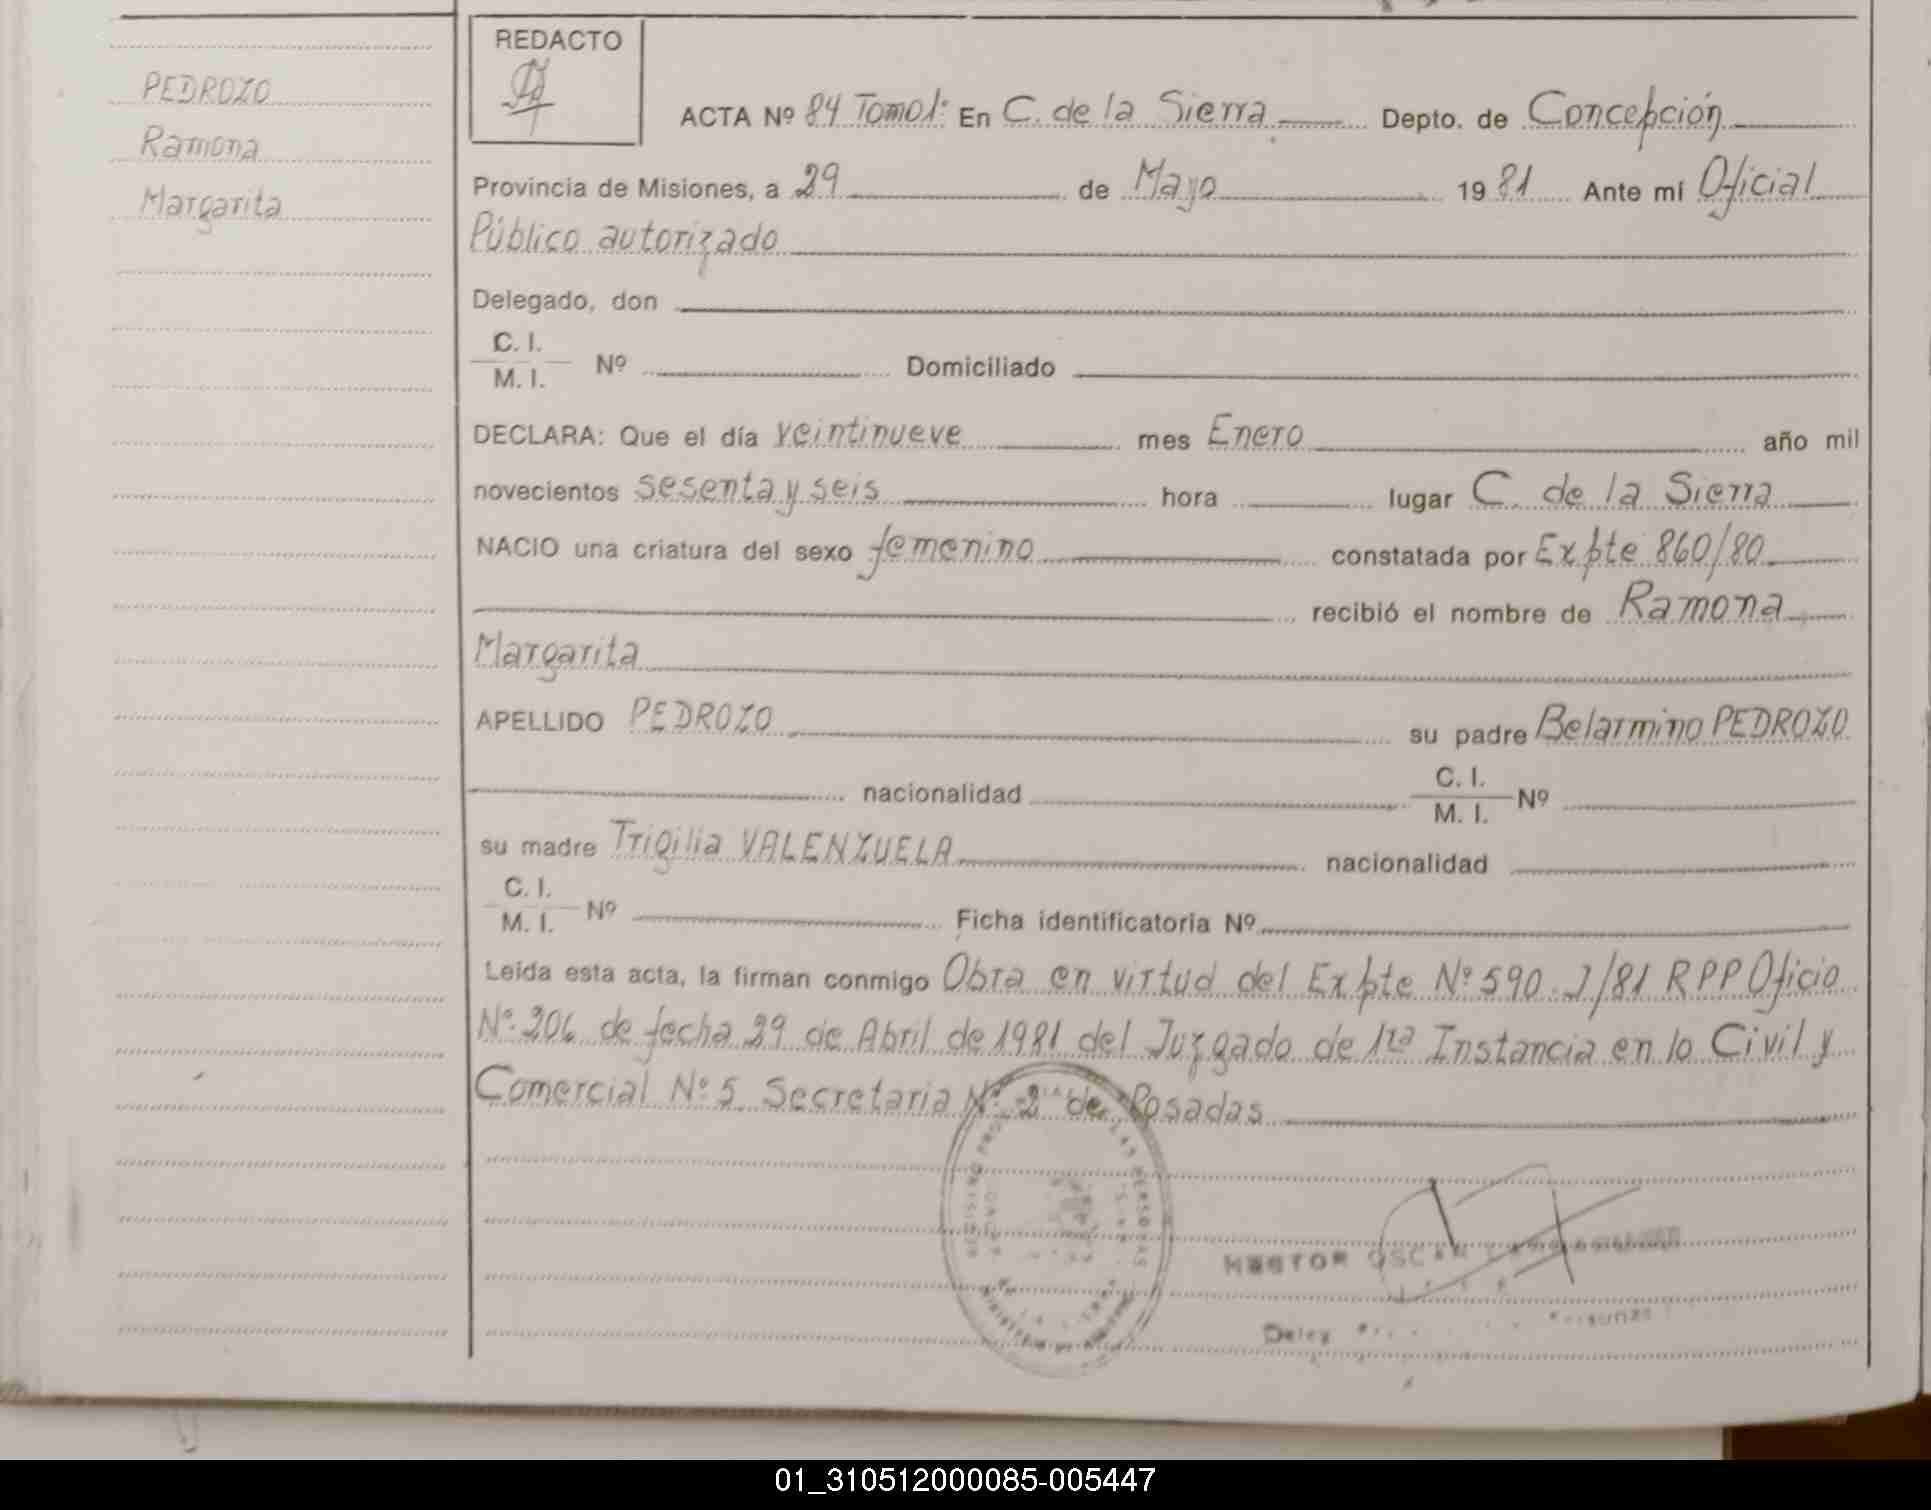 PEDROZO
Ramona
Margarita
REDACTO
ACTA Nº 84 Tomo1: En C. de la Sierra Depto. de Concepción
Provincia de Misiones, a 29 de Mayo 1981 Ante mí Oficial
Público autorizado
Delegado, don
C. I.
M. I. Nº Domiciliado
DECLARA: Que el día veintinueve mes Enero año mil
novecientos sesenta y seis hora lugar C. de la Sierra
NACIO una criatura del sexo femenino constatada por Expte 860/80
recibió el nombre de Ramona
Margarita
APELLIDO PEDROZO su padre Belarmino PEDROZO
nacionalidad C. I.
M. I. Nº
su madre Trigilia VALENZUELA nacionalidad
C. I.
M. I. Nº Ficha identificatoria Nº
Leída esta acta, la firman conmigo Obra en virtud del Expte Nº 590 J/81 RPP Oficio
Nº 206 de fecha 29 de Abril de 1981 del Juzgado de 1ra Instancia en lo Civil y
Comercial Nº 5 Secretaria Nº 2 de Posadas
HECTOR OSCAR
01_310512000085-005447